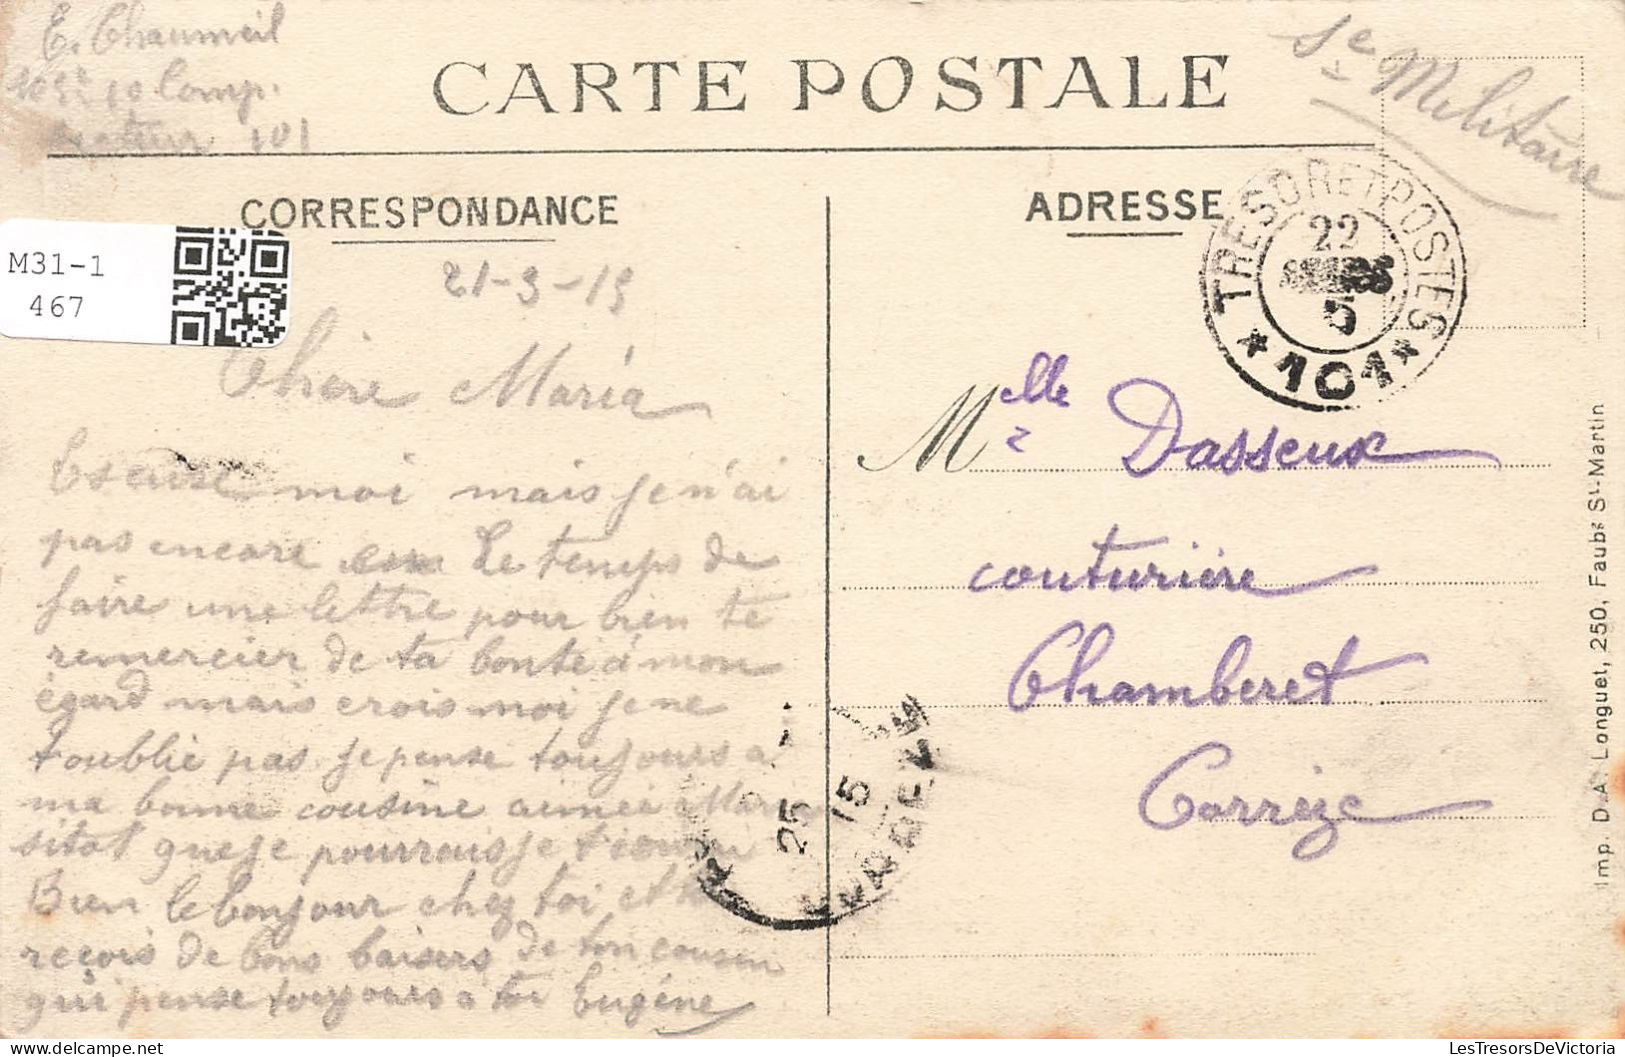 E. Chaumeil
10 Comp.
Secteur 101
CARTE POSTALE
Sce Militaire
CORRESPONDANCE
ADRESSE
TRESOR ET POSTES
22
5
* 101 *
M31-1
467
21-3-15
Chère Maria
Escuse moi mais je n'ai
pas encore eu le temps de
faire une lettre pour bien te
remercier de ta bonté à mon
égard mais crois moi je ne
t'oublie pas je pense toujours a
ma bonne cousine aimée Maria
sitot que je pourrais je
Bien le bonjour chez toi et toi
reçois de bons baisers de ton cousin
qui pense toujours a toi Eugène
25
15
Melle Dasseux
couturière
Chamberet
Corrèze
Imp. D.A. Longuet, 250, Faubg St-Martin
LesTresorsDeVictoria